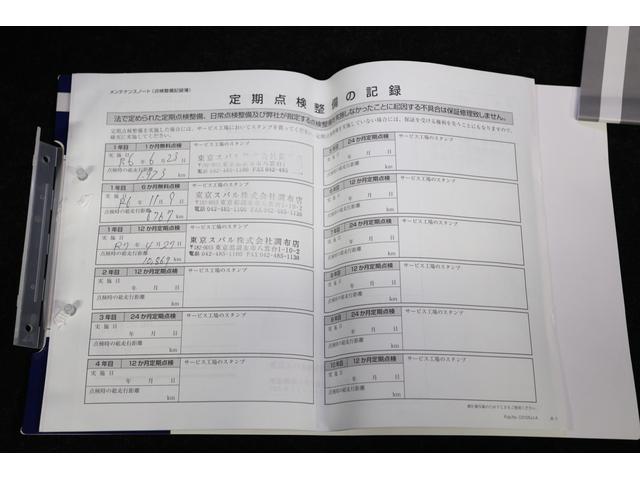 メンテナンスノート(点検整備記録簿)
定期点検整備の記録
法で定められた定期点検整備、日常点検整備及び弊社が指定する点検整備を実施しなかったことに起因する不具合は保証修理致しません。
定期点検整備を実施した場合には、サービス工場においてスタンプを貰ってください。
確実に実施してください。
実施していない場合には、保証を受ける権利を失うことにもなりますので、
1年目 1か月無料点検 サービス工場のスタンプ
実施日
R6年6月23日
点検時の総走行距離
東京スバル株式会社調布店
1年目 6か月無料点検 サービス工場のスタンプ
実施日
R6年11月9日
点検時の総走行距離
6767km
東京スバル株式会社調布店
〒182-0015 東京都調布市八雲台1-10-2
電話 042-485-1180 FAX 042-485-1138
1年目 12か月定期点検 サービス工場のスタンプ
実施日
R7年4月27日
点検時の総走行距離
10,869km
東京スバル株式会社調布店
〒182-0015 東京都調布市八雲台1-10-2
電話 042-485-1180 FAX 042-485-1138
2年目 24か月定期点検 サービス工場のスタンプ
実施日
年 月 日
点検時の総走行距離
km
3年目 24か月定期点検 サービス工場のスタンプ
実施日
年 月 日
点検時の総走行距離
km
4年目 12か月定期点検 サービス工場のスタンプ
実施日
年 月 日
点検時の総走行距離
km
24か月定期点検 サービス工場のスタンプ
年 月 日
km
12か月定期点検 サービス工場のスタンプ
年 月 日
km
24か月定期点検 サービス工場のスタンプ
年 月 日
km
12か月定期点検 サービス工場のスタンプ
年 月 日
km
24か月定期点検 サービス工場のスタンプ
年 月 日
km
10年目 12か月定期点検 サービス工場のスタンプ
実施日
年 月 日
点検時の総走行距離
km